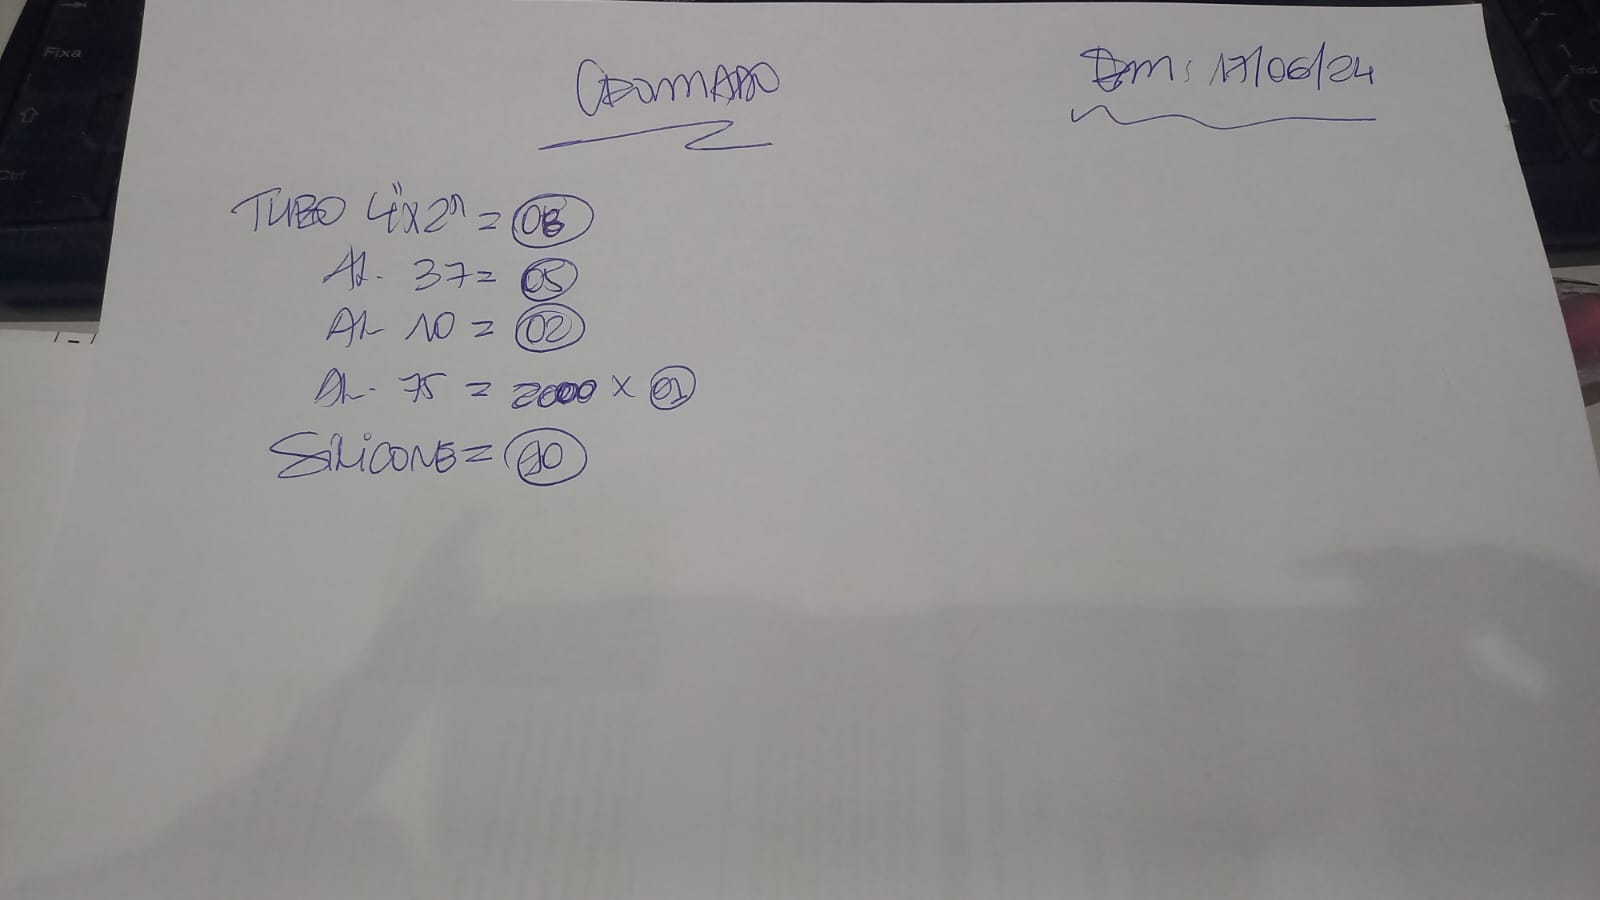 CROMADO
Em: 17/06/24
TUBO 4"x2" =
AL. 37= 05
AL 10 = 02
AL. 75 = 2000 x 01
SILICONE= 10
Fixa
Ctrl
End